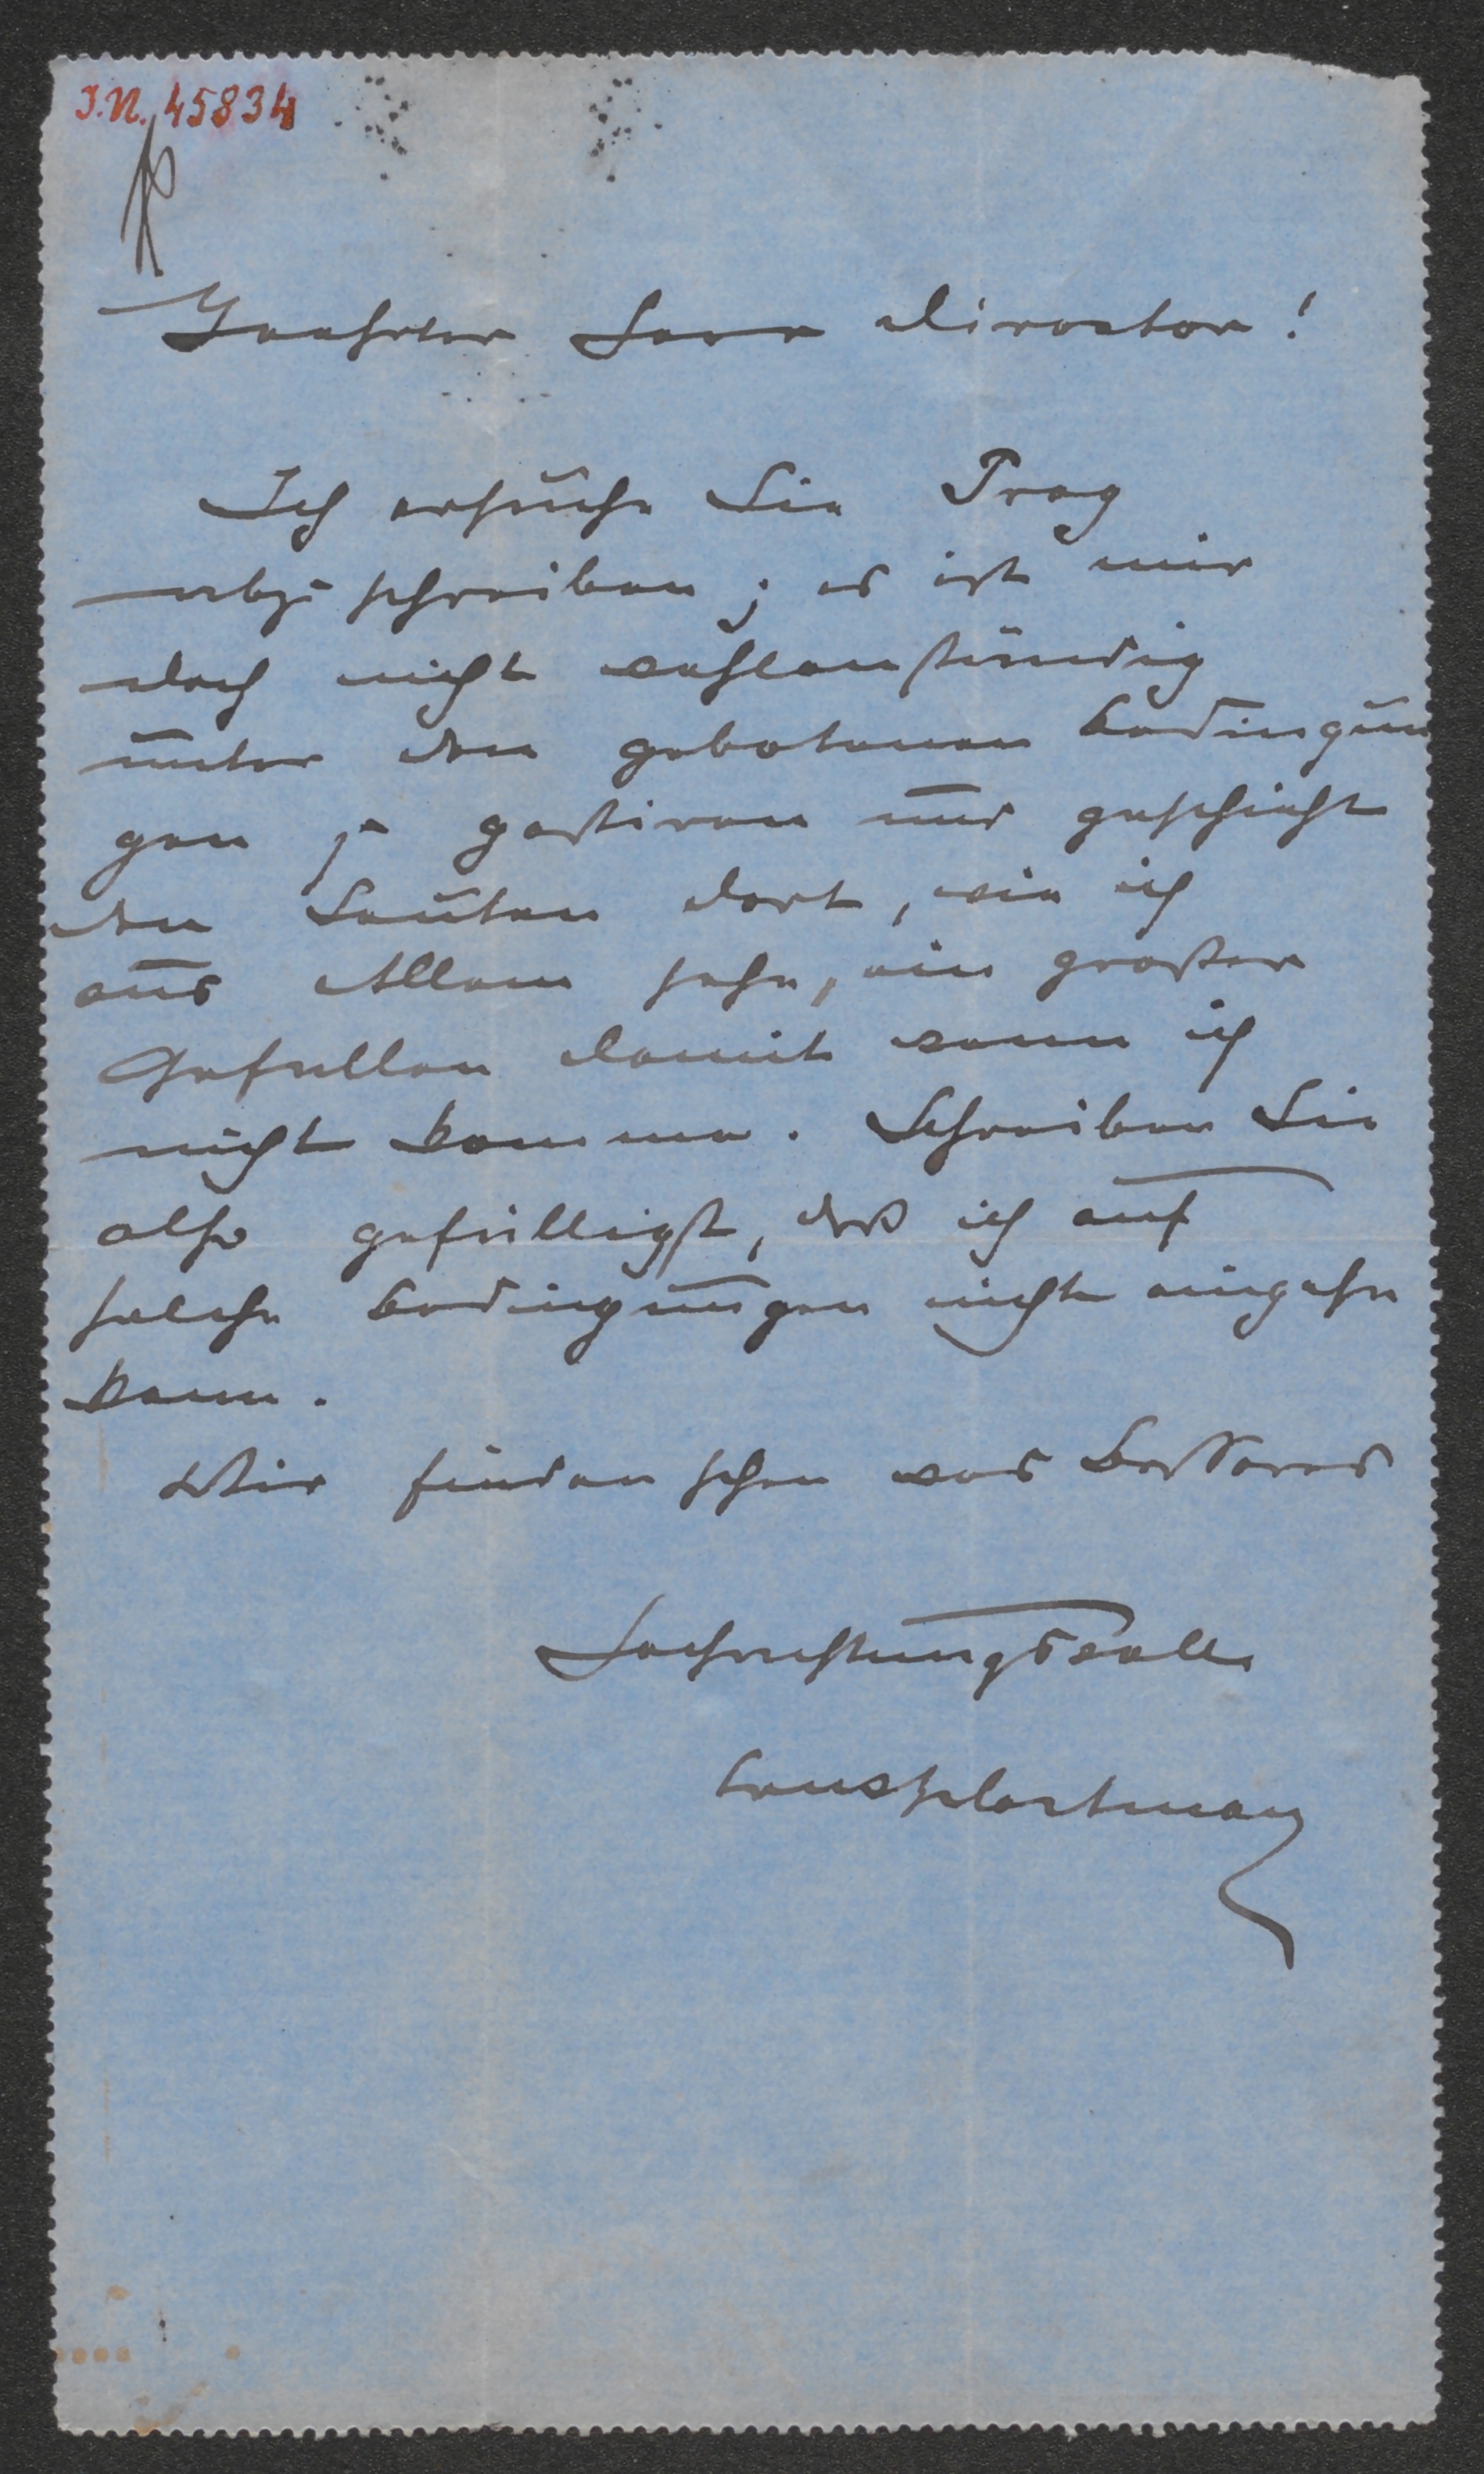 J.N. 45834
Geehrter Herr Director!
Ich ersuche Sie Prag
abzuschreiben; es ist mir
doch nicht wohlanständig
unter den gebotenen Bedingun
gen zu gastiren und geschieht
den Leuten dort, wie ich
aus Allem sehe, ein großer
Gefallen damit wenn ich
nicht komme. Schreiben Sie
also gefälligst, daß ich auf
solche Bedingungen nicht eingehen
kann.
Wir finden schon was Besseres
Hochachtungsvoll